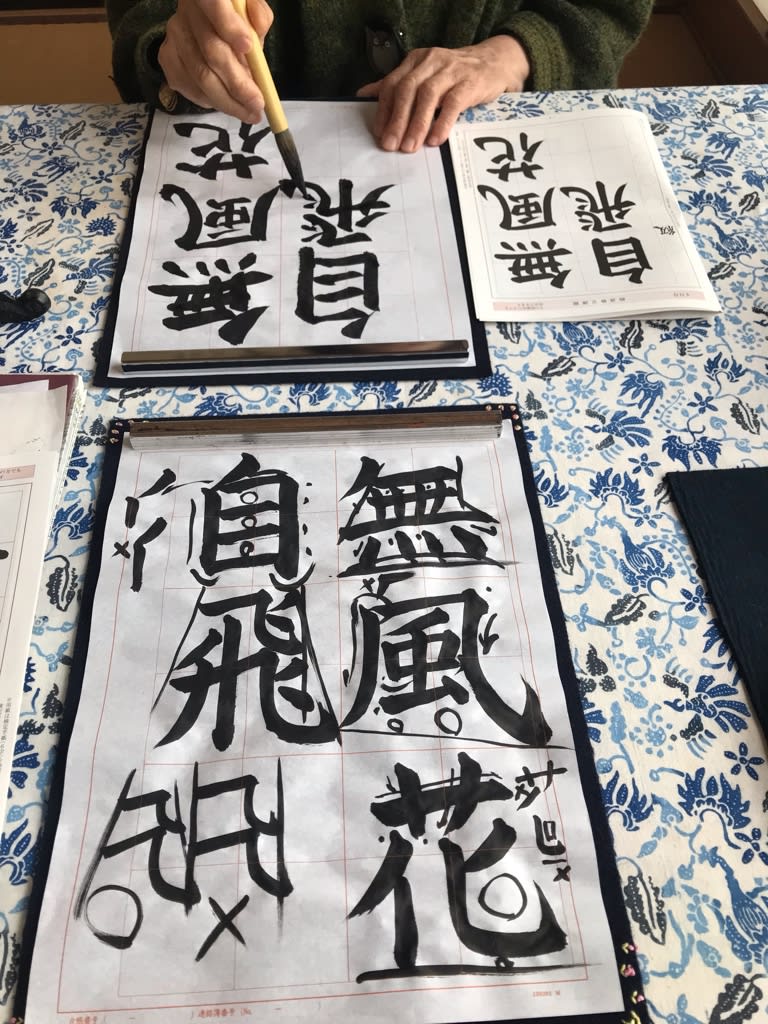 無風花
自飛
無風花
自飛
無風花
自飛